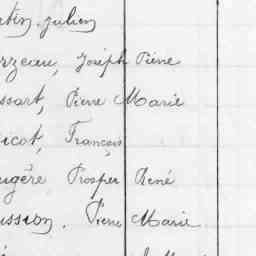 rtin, Julien
rzeau, Joseph Pierre
ssart, Pierre Marie
icot, François
ugère Prosper René
ussion. Pierre Marie